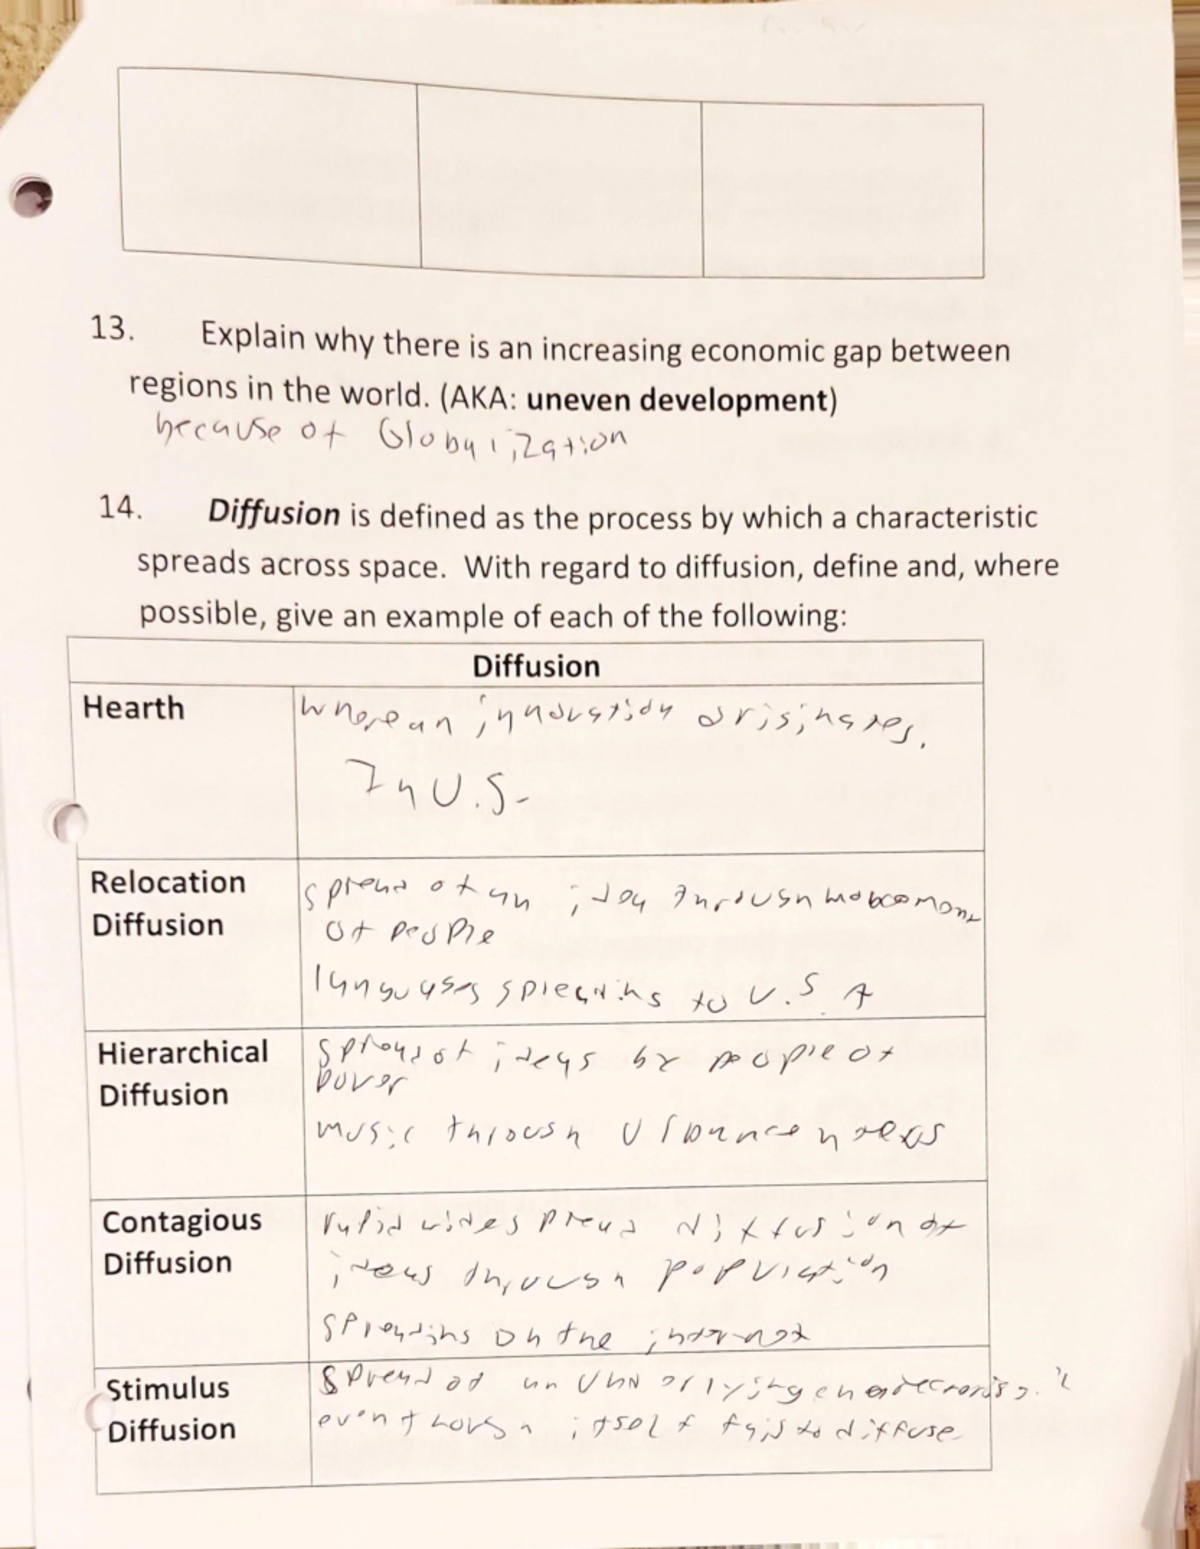 13. Explain why there is an increasing economic gap between
regions in the world. (AKA: uneven development)
because of Globalization
14. Diffusion is defined as the process by which a characteristic
spreads across space. With regard to diffusion, define and, where
possible, give an example of each of the following:
Diffusion
Hearth
where an innovation originates.
In U.S.
Relocation
Diffusion
spread of an idea through movement
of people
languages spreading to U.S.A
Hierarchical
Diffusion
spread of ideas by people of
power
music through urban areas
Contagious
Diffusion
rapid widespread diffusion of
ideas through population
spreading on the internet
Stimulus
Diffusion
spread of an underlying
even though itself fails to diffuse